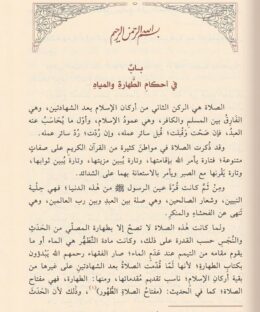 بسم الله الرحمن الرحيم
باب
في أحكام الطهارة والمياه
الصلاة هي الركن الثاني من أركان الإسلام بعد الشهادتين، وهي
الفارق بين المسلم والكافر، وهي عمود الإسلام، وأول ما يُحاسب عنه
العبد، فإن صحت وقُبلت؛ قُبل سائر عمله، وإن رُدَّت؛ رُدَّ سائر عمله.
وقد ذُكرت الصلاة في مواطن كثيرة من القرآن الكريم على صفات
متنوعة؛ فتارة يأمر الله بإقامتها، وتارة يُبين مزيتها، وتارة يُبين ثوابها،
وتارة يقرنها مع الصبر ويأمر بالاستعانة بهما على الشدائد.
ومن ثَمَّ كانت قُرَّة عين الرسول ﷺ من هذه الدنيا؛ فهي حلية
النبيين، وشعار الصالحين، وهي صلة بين العبد وبين رب العالمين، وهي
تنهى عن الفحشاء والمنكر.
ولما كانت هذه الصلاة لا تصحُّ إلا بطهارة المصلي من الحَدَثِ
والنَّجَس حسب القدرة على ذلك، وكانت مادة التَّطهُّر هي الماء أو ما
يقوم مقامه من التيمم عند عَدَم الماء؛ صار الفقهاء رحمهم الله يَبْدَؤون
بكتاب الطهارة؛ لأنها لَمَّا قُدِّمت الصلاة بعد الشهادتين على غيرها من
بقية أركان الإسلام؛ ناسب تقديم مُقدماتها، ومنها: الطهارة، فهي مفتاح
الصلاة؛ كما في الحديث: (مفتاحُ الصلاةِ الطُّهُورُ)(١)، وذلك لأن الحَدَثَ